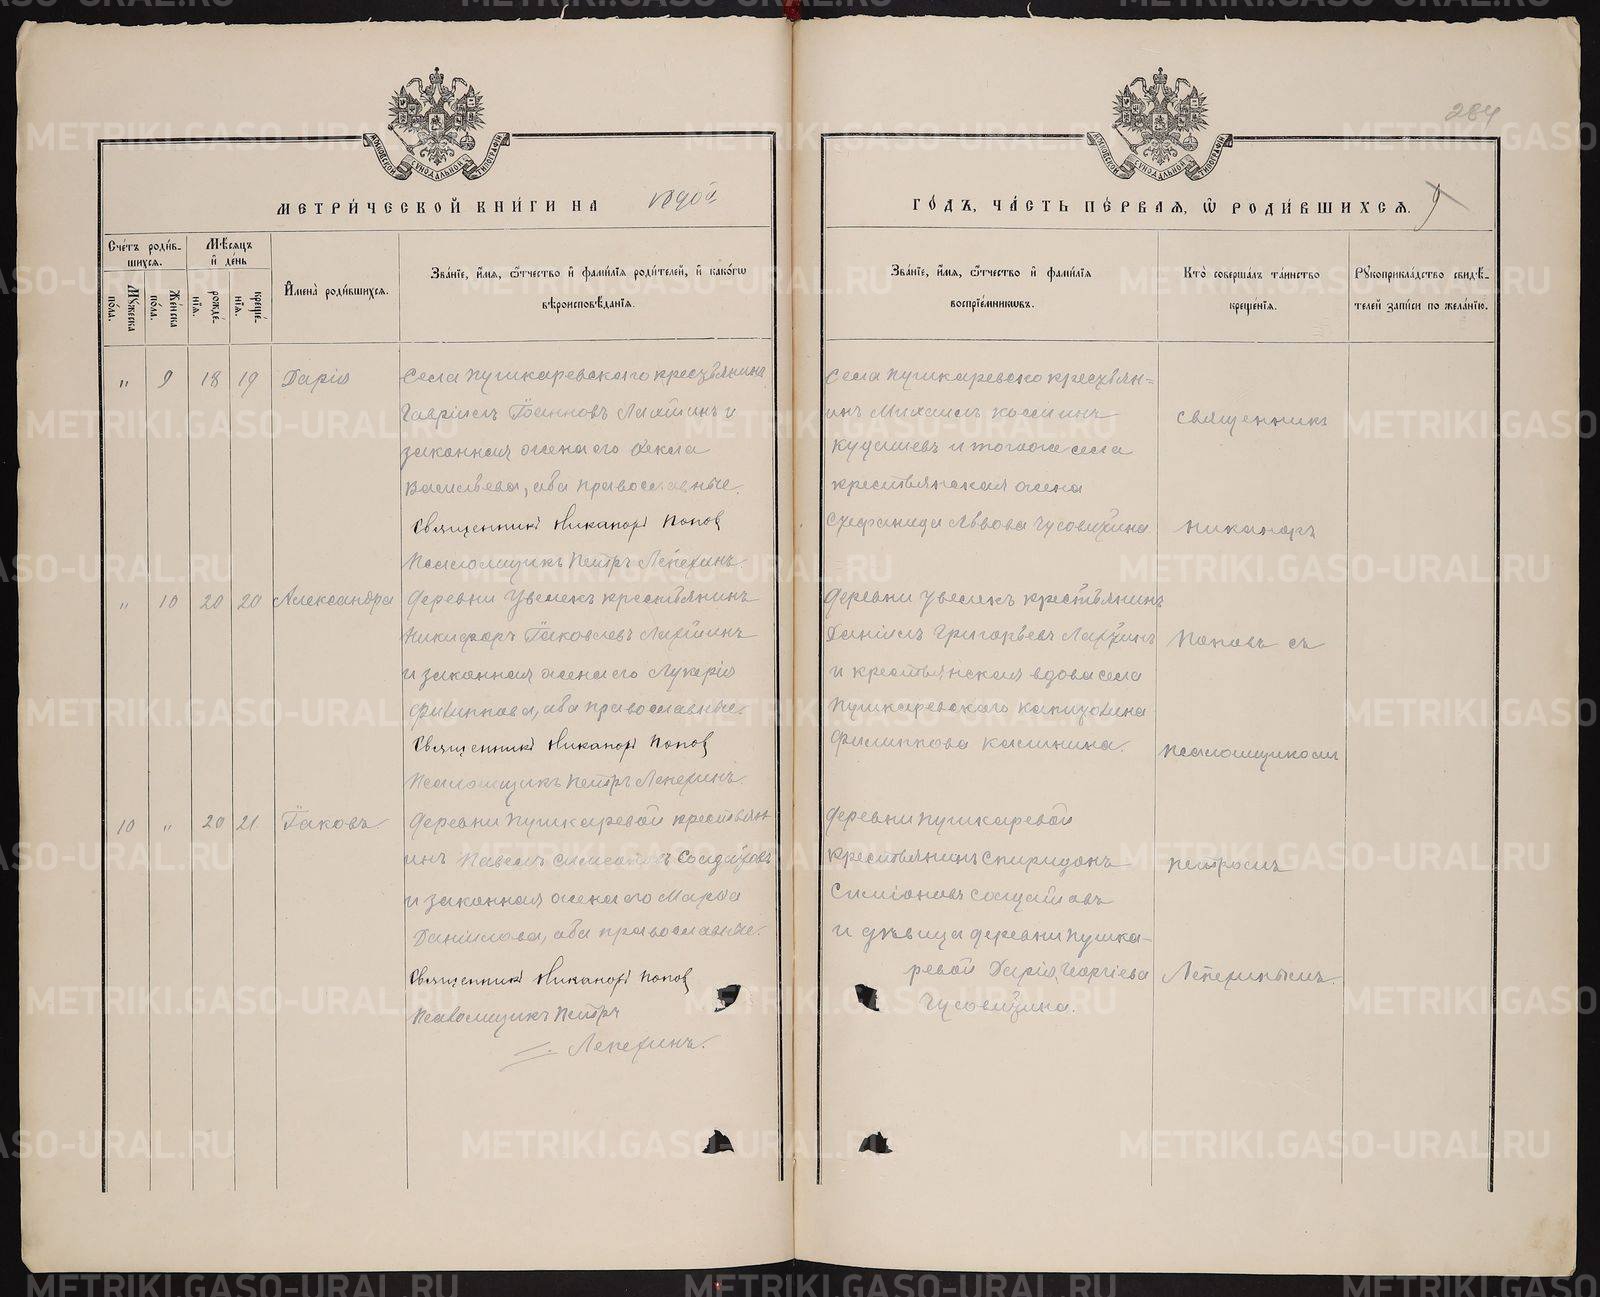 284
МЕТРИЧЕСКОЙ КНИГИ НА
ГОДЪ, ЧАСТЬ ПЕРВАЯ, Ѿ РОДИВШИХСЯ.
9
Счетъ родив-
шихся.
Мужеска
пола.
Женска
пола.
Мѣсяцъ
и день
рожде-
нїя.
креще-
нїя.
Имена родившихся.
Званїе, имя, ѿтчество и фамилїя родителей, и какогѡ
вѣроисповѣданїя.
Званїе, имя, ѿтчество и фамилїя
воспрїемникѡвъ.
Кто совершалъ таинство
крещенїя.
Рукоприкладство свидѣ-
телей записи по желанїю.
" 9 18 19 Дарія
Села Пушкаревскаго крестьянинъ
Гавріилъ Іоанновъ и
законная жена его Ѳекла
Васильева, оба православные.
Священникъ Никаноръ Попов
Псаломщикъ Петръ Лепехинъ.
Села Пушкаревско крестьян=
инъ Михаилъ
Кудашевъ и тогоже села
крестьянская жена
Стефанида Львова Чусовитина
" 10 20 20 Александра
Деревни Увелекъ крестьянинъ
Никифоръ Іаковлевъ
и законная жена его Лукерія
Филиппова, оба православные.
Священникъ Никаноръ Попов
Псаломщикъ Петръ Лепехинъ.
Деревни Увелекъ крестьянинъ
Даніилъ Григорьевъ
и крестьянская вдова села
Пушкаревскаго
Филиппова Калинина.
10 " 20 21 Іаковъ
Деревни Пушкаревой крестьян
инъ Павелъ
и законная жена его Марѳа
Даніилова, оба православные.
Священникъ Никаноръ Попов
Псаломщикъ Петръ
Лепехинъ.
Деревни Пушкаревой
крестьянинъ Спиридонъ
Симіоновъ
и дѣвица деревни Пушка-
ревой Дарія Георгіева
Чусовитина.
Священникъ
Никаноръ
Поповъ съ
псаломщикомъ
Петромъ
Лепехинымъ.